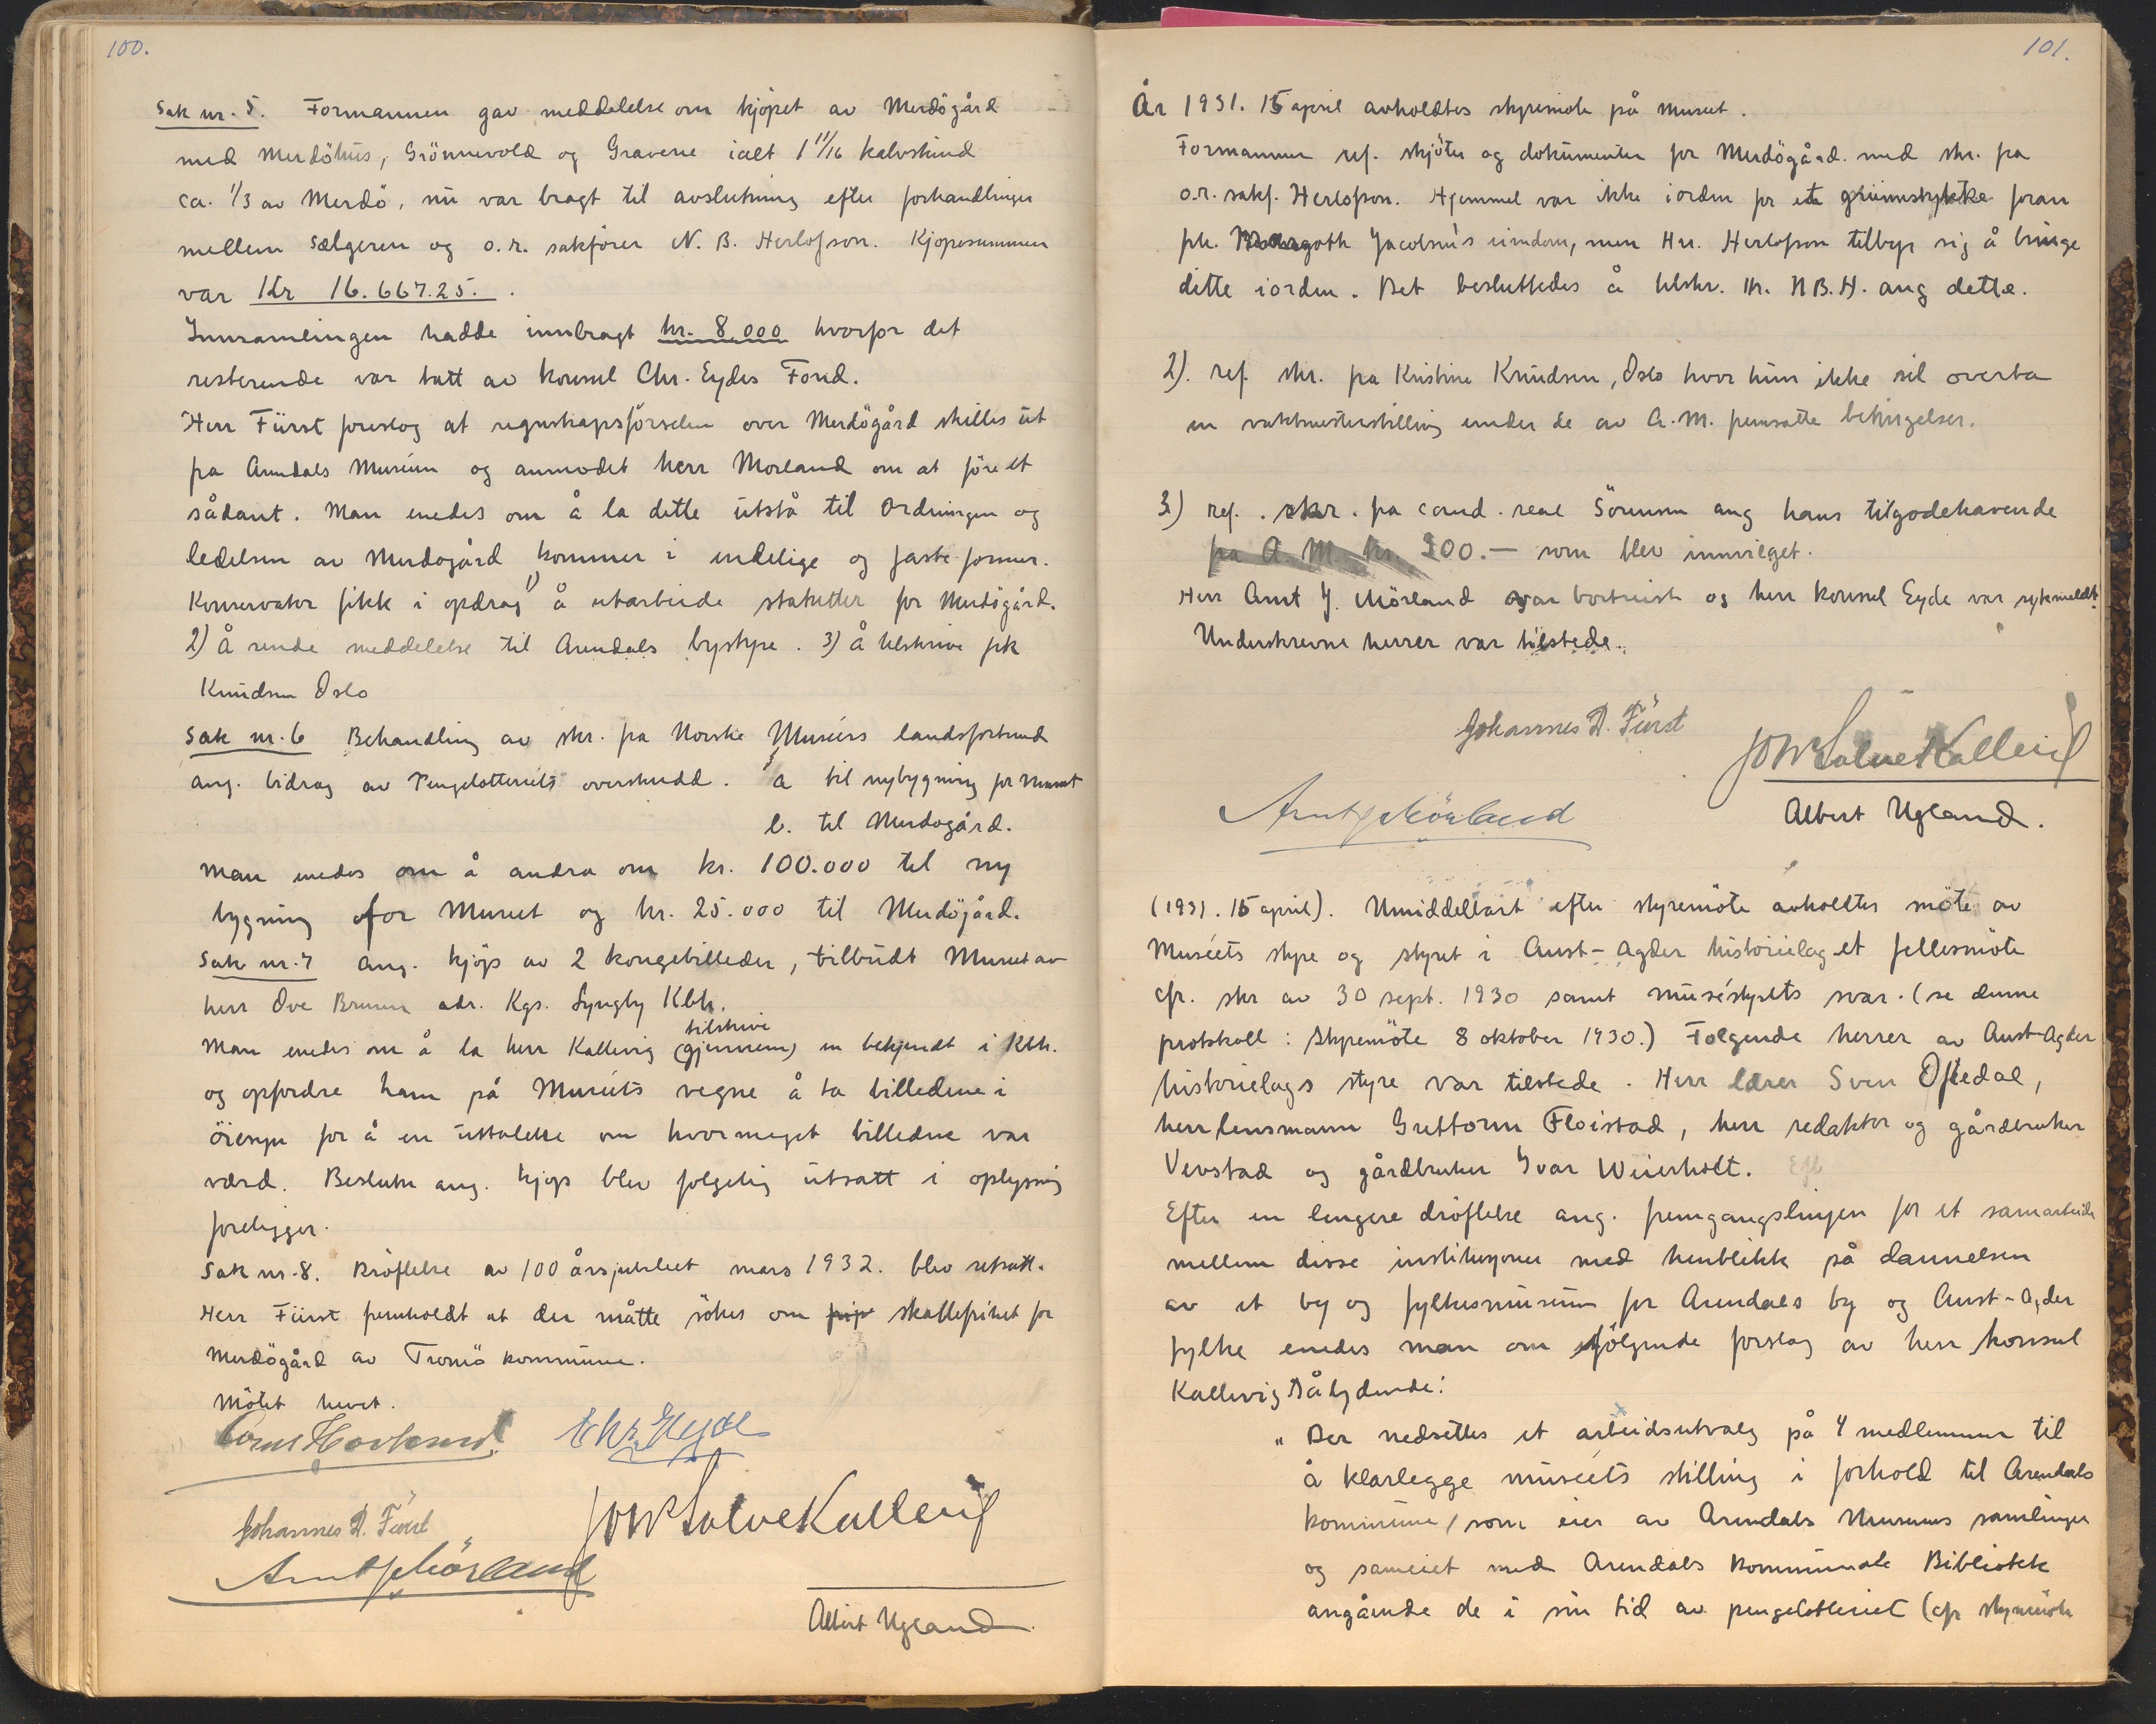 100.
Sak nr. 5. Formannen gav meddelelse om kjöpet av Merdögård
med Merdöhus, Grönnevold og Gravene ialt 1 11/16 kalvskind
ca. 1/3 av Merdö, nu var bragt til avslutning efter forhandlinger
mellem Sælgeren og o.r. sakförer N. B. Herlofson. Kjöpesummen
var Kr 16.667.25.
Innsamlingen hadde innbragt kr. 8.000 hvorfor det
resterende var tatt av konsul Chr. Eydes Fond.
Herr Fürst foreslog at regnskapsförselen over Merdögård skilles ut
fra Arendals Museum og anmodet herr Mörland om at före et
sådant. Man enedes om å la dette utstå til Ordningen og
ledelsen av Merdogård kommer i endelige og faste former.
Konservator fikk i opdrag 1) å utarbeide statutter for Merdögård.
2) Å sende meddelelse til Arendals bystyre. 3) å tilskrive frk
Knudsen Oslo
Sak nr. 6 Behandling av skr. fra Norske Museers landsforbund
ang. bidrag av Pengelotteriets overskudd. a til nybygning for Museet
b. til Merdogård.
Man enedes om å andra om kr. 100.000 til ny
bygning for Museet og kr. 25.000 til Merdögård.
Sak nr. 7 ang. kjöp av 2 kongebilleder, tilbudt Museet av
herr Ove Bruun adr. Kgs. Lyngby Kbh.
tilskrive
Man enedes om å la herr Kallevig (gjennem) en bekjendt i Kbh.
og opfordre ham på Museets vegne å ta billedene i
öiesyn for å en uttalelse om hvormeget billedene var
værd. Beslutn ang. kjöp blev folgelig utsatt i oplysning
foreligger.
Sak nr. 8. Dröftelse av 100 årsjubileet mars 1932. blev utsatt.
Herr Fürst fremholdt at der måtte sökes om skattefrihet for
Merdögård av Tromö kommune.
Mötet hevet.
Chr. Eyde
Johannes A. Fürst
JOWSalveKallevig
Arnt J Mörland
Albert Ugland
101.
År 1931. 15 april avholdtes styremöte på museet.
Formannen ref. skjöter og dokumenter for Merdögård. med skr. fra
o.r. sakf. Herlofson. Hjemmel var ikke iorden for et grunnstykke foran
frk. Jacobsen's eiendom, men Hr. Herlofson tilbyr sig å bringe
dette iorden. Det besluttedes å tilskr. Hr. N B. H. ang dette.
2). ref. skr. fra Kristine Knudsen, Oslo hvor hun ikke vil overta
en vaktmesterstilling under de av A. M. fremsatte betingelser.
3) ref. skr. fra cand. real Sörensen ang hans tilgodehavende
fra A. M. kr. 300.— som blev innvilget.
Herr Arnt J. Mörland var bortreist og herr konsul Eyde var sykemeldt.
Underskrevne herrer var tilstede.
Johannes A. Fürst
JOWSalveKallevig
Arnt J Mörland
Albert Ugland.
(1931. 15 april). Umiddelbart efter styremöte avholdtes möte av
Museets styre og styret i Aust-Agder historielag et fellesmöte
cfr. skr av 30 sept. 1930 samt muséstyrets svar. (se denne
protokoll: styremöte 8 oktober 1930.) Folgende herrer av Aust-Agder
historielags styre var tilstede. Herr lærer Sven Oftedal,
herr lensmann Guttorm Floistad, herr redaktor og gårdbruker
Vevstad og gårdbruker Ivar Weierholt.
Efter en lengere dröftelse ang. fremgangslinjen for et samarbeide
mellem disse institusjoner med henblikk på dannelsen
av et by og fylkesmuseum for Arendals by og Aust-Agder
fylke enedes man om fölgende forslag av herr konsul
Kallevig sålydende:
„Der nedsettes et arbeidsutvalg på 4 medlemmer til
å klarlegge museets stilling i forhold til Arendals
kommune, som eier av Arendals Museums samlinger
og sameiet med Arendals Kommunale Bibliotek
angående de i sin tid av pengelotteriet (cfr styremöte